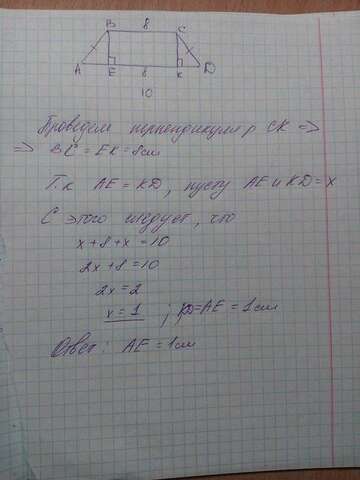 B 8 C
A E 8 K D
10
Проведем перпендикуляр CK =>
=> BC = EK = 8см
Т.к AE = KD, пусть AE и KD = x
С этого следует, что
x + 8 + x = 10
2x + 8 = 10
2x = 2
x = 1 ; KD = AE = 1см
Ответ: AE = 1см